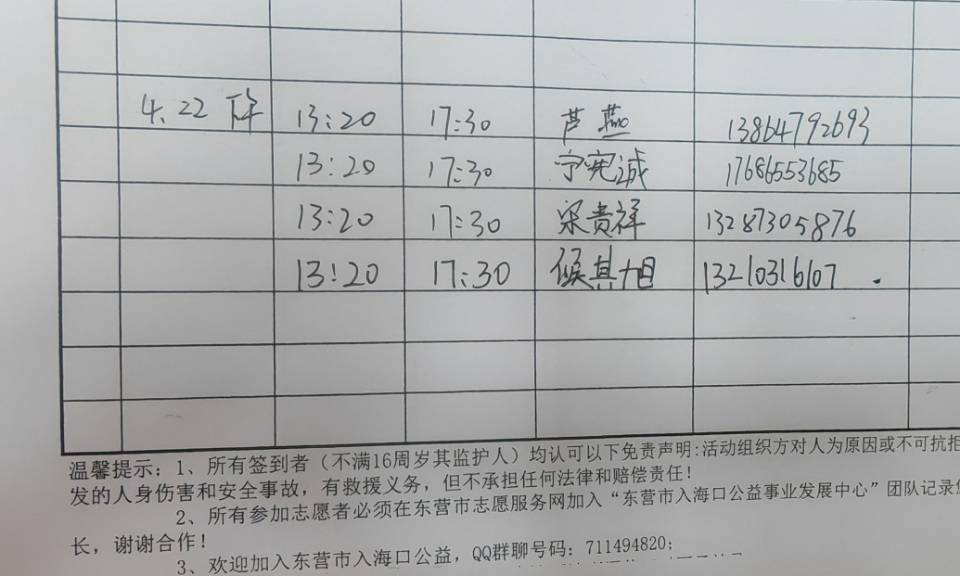 4.22 下午 13:20 17:30 芦燕 13864792693
13:20 17:30 宁宪诚 17686553685
13:20 17:30 梁贵祥 13287305876
13:20 17:30 候其旭 13210316107
温馨提示：1、所有签到者（不满16周岁其监护人）均认可以下免责声明:活动组织方对人为原因或不可抗拒
发的人身伤害和安全事故，有救援义务，但不承担任何法律和赔偿责任！
2、所有参加志愿者必须在东营市志愿服务网加入“东营市入海口公益事业发展中心”团队记录
长，谢谢合作！
3、欢迎加入东营市入海口公益，QQ群聊号码：711494820；